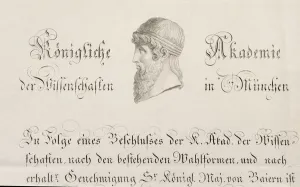 Königliche Akademie
der Wissenschaften in München
In Folge eines Beschlußes der K. Akad. der Wissen-
schaften, nach den bestehenden Wahlformen, und nach
erhalt.r Genehmigung Sr. Königl. Maj. von Baiern ist